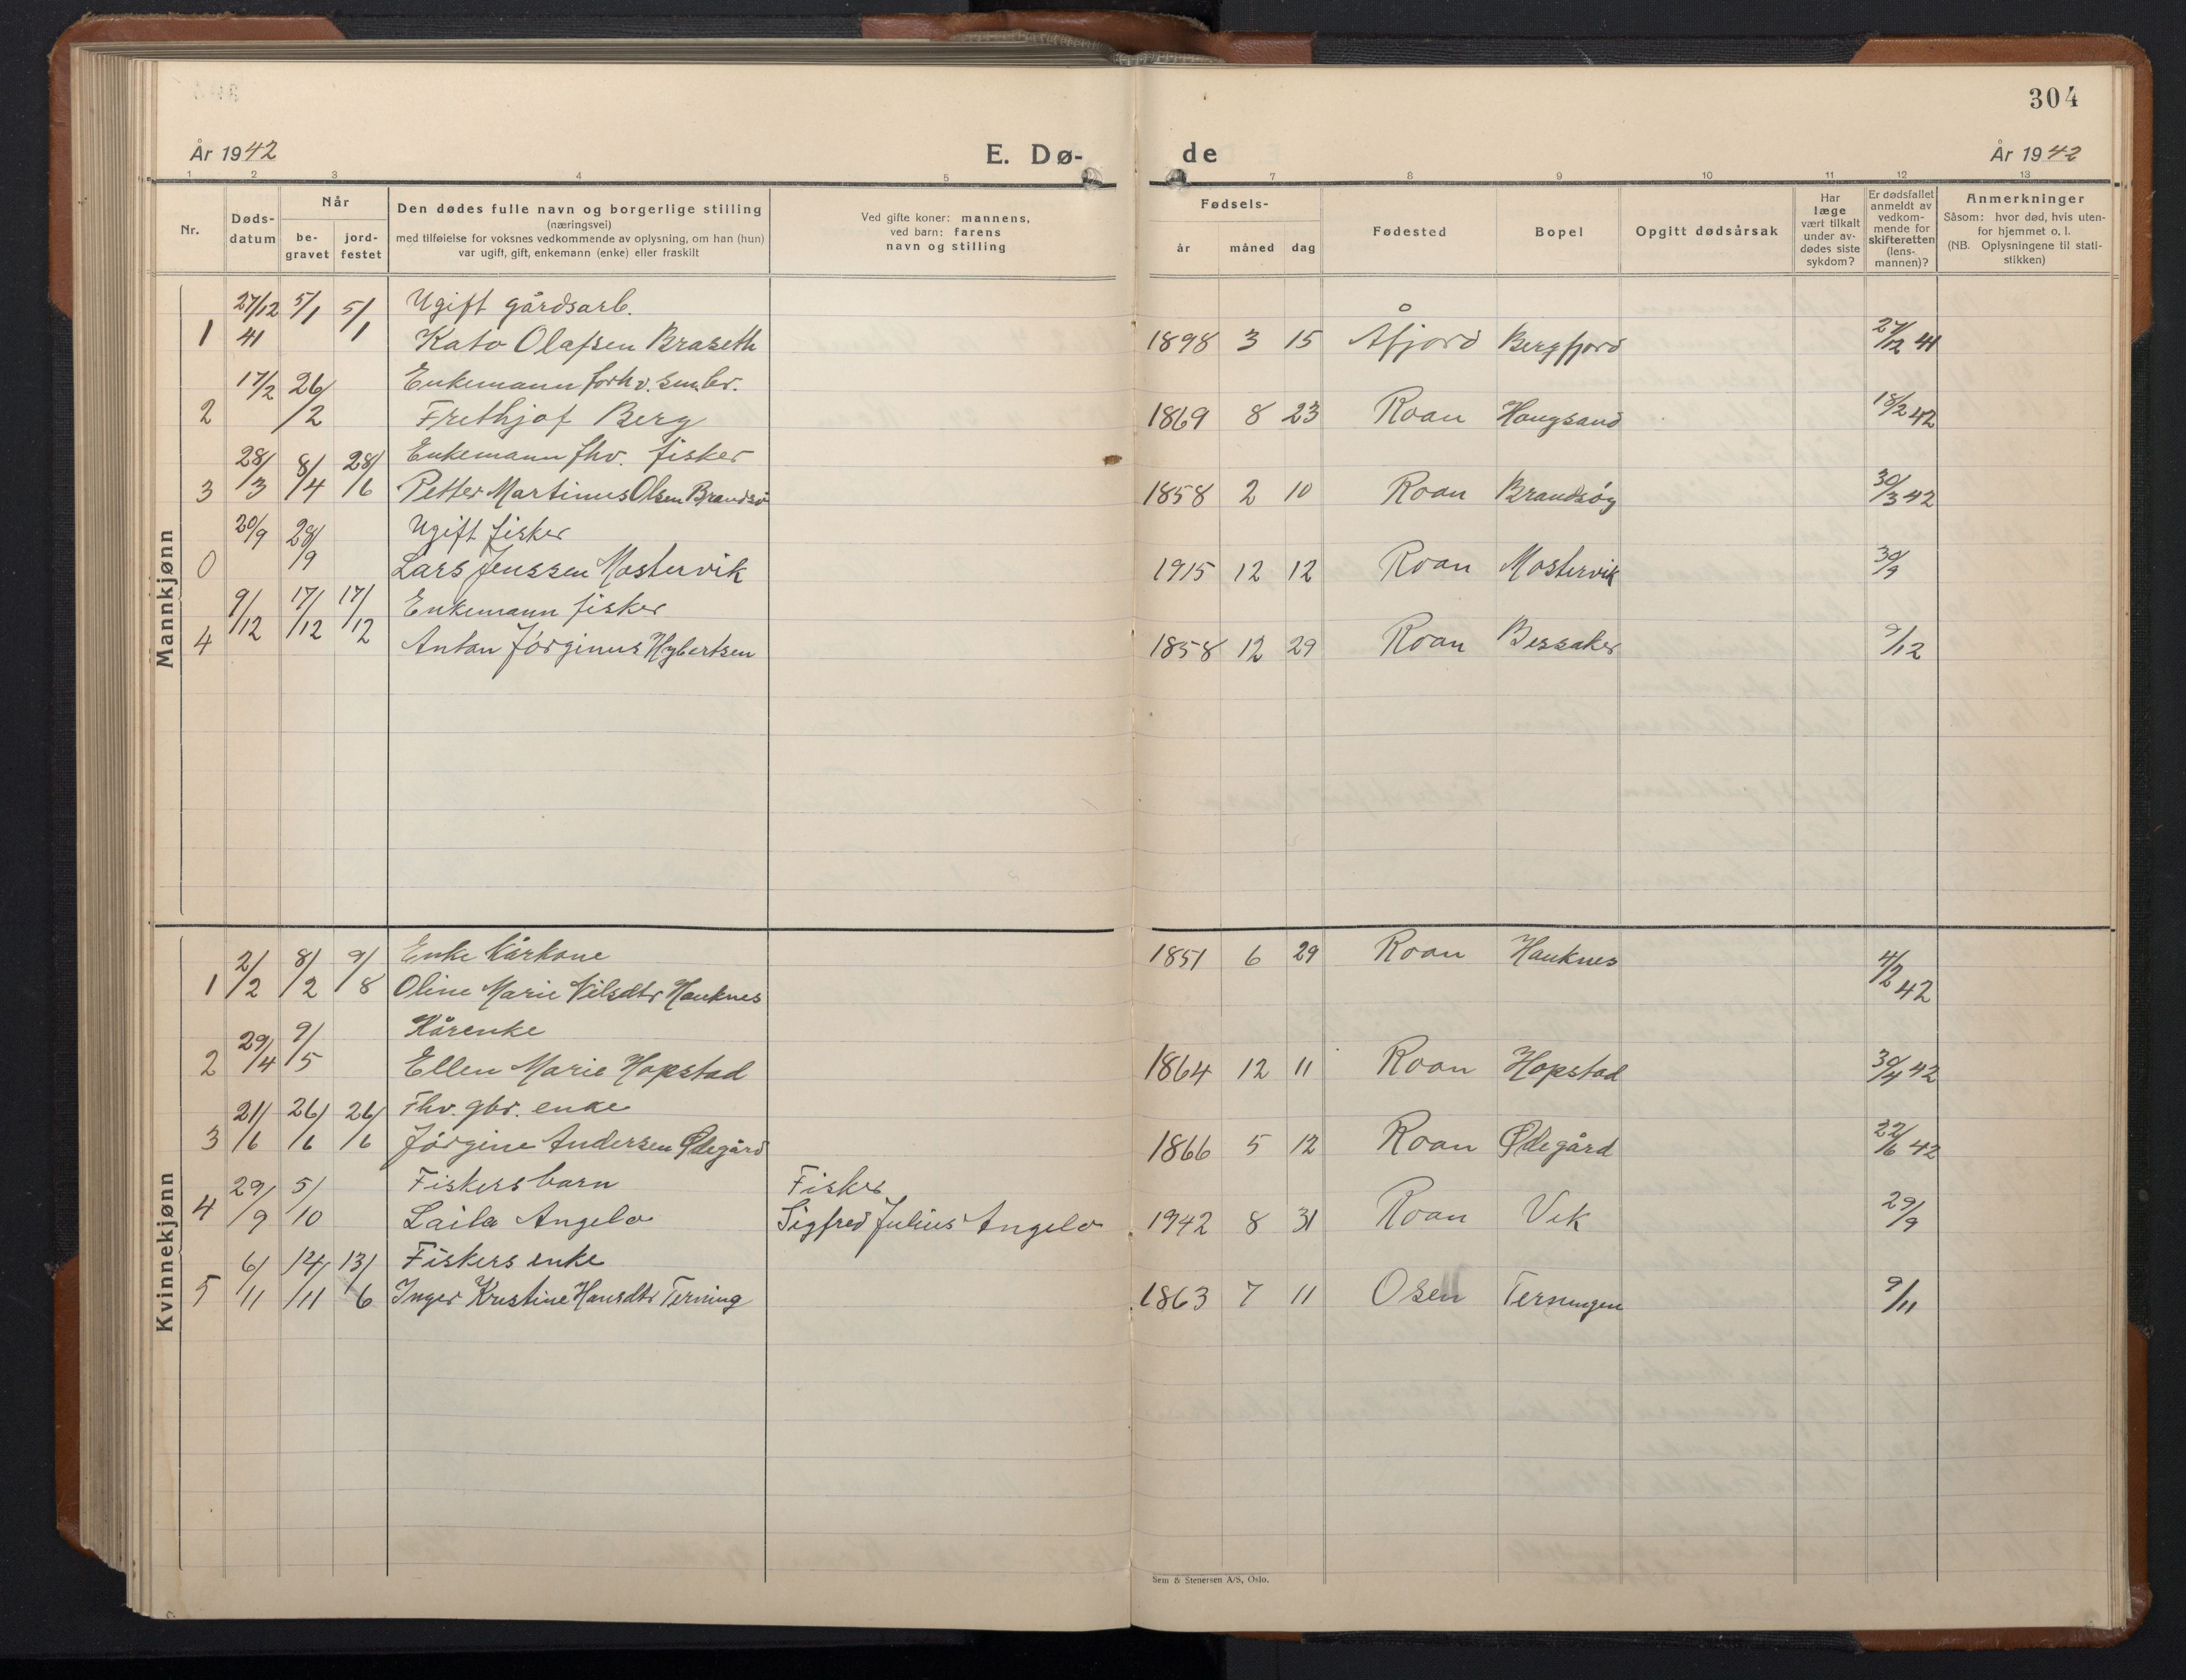 304
År 1942
E. Dø-
de
År 1942
1 2 3 4 5 7 8 9 10 11 12 13
Nr.
Døds-
datum
Når
be-
gravet
jord-
festet
Den dødes fulle navn og borgerlige stilling
(næringsvei)
med tilføielse for voksnes vedkommende av oplysning, om han (hun)
var ugift, gift, enkemann (enke) eller fraskilt
Ved gifte koner: mannens,
ved barn: farens
navn og stilling
Fødsels-
år måned dag
Fødested
Bopel
Opgitt dødsårsak
Har
læge
vært tilkalt
under av-
dødes siste
sykdom?
Er dødsfallet
anmeldt av
vedkom-
mende for
skifteretten
(lens-
mannen)?
Anmerkninger
Såsom: hvor død, hvis uten-
for hjemmet o. l.
(NB. Oplysningene til stati-
stikken)
Mannkjønn
27/12 5/1 5/1 Ugift gårdsarb.
1 41 Kato Olafsen Braseth 1898 3 15 Åfjord Bergfjord 27/12 41
17/2 26/2 Enkemann forhv. småbr.
2 Frethjof Berg 1869 8 23 Roan Haugsand 18/2 42
28/3 8/4 28/6 Enkemann fhv. fisker
3 Petter Martinus Olsen Brandsø 1858 2 10 Roan Brandsøy 30/3 42
20/9 28/9 Ugift fisker
0 Lars Jenssen Mostervik 1915 12 12 Roan Mostervik 30/9
9/12 17/12 17/12 Enkemann fisker
4 Anton Jörginus Hybertsen 1858 12 29 Roan Bessaker 9/12
Kvinnekjønn
2/2 8/2 9/8 Enke kårkone 1851 6 29 Roan Hauknes 4/2 42
1 Oline Marie Nilsdtr Hauknes
29/4 9/5 Kårenke
2 Ellen Marie Hopstad 1864 12 11 Roan Hopstad 30/4 42
21/6 26/6 26/6 Fhv. gbr. enke
3 Jörgine Andersen Ødegård 1866 5 12 Roan Ødegård 22/6 42
29/9 5/10 Fiskers barn Fisker
4 Laila Angelo Sigfred Julius Angelo 1942 8 31 Roan Vik 29/9
6/11 14/11 13/6 Fiskers enke
5 Inger Kristine Hansdtr Terning 1863 7 11 Osen Terningen 9/11
Sem & Stenersen A/S, Oslo.